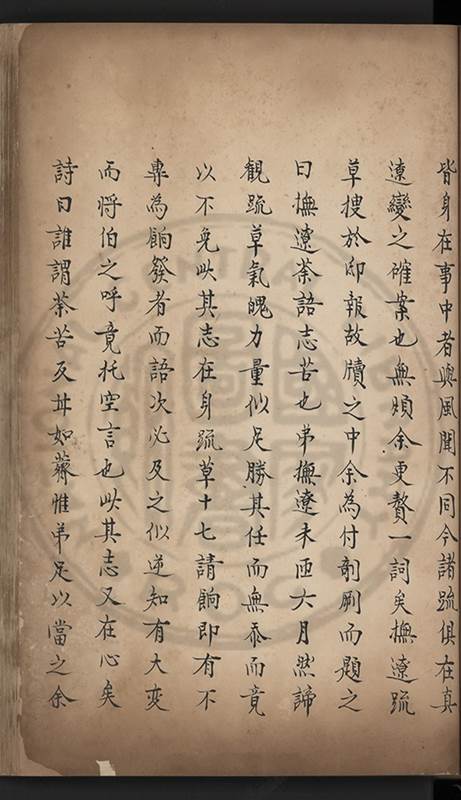 皆身在事中者與風聞不同今諸疏俱在真
遼變之確案也無煩余更贅一詞矣撫遼疏
草搜於邸報故牘之中余為付剞劂而題之
曰撫遼荼語志苦也弟撫遼未匝六月然諦
觀疏草氣魄力量似足勝其任而無忝而竟
以不免此其志在身疏草十七請餉即有不
專為餉發者而語次必及之似逆知有大变
而将伯之呼竟托空言也此其志又在心矣
詩曰誰謂荼苦又其如薺惟弟足以當之余